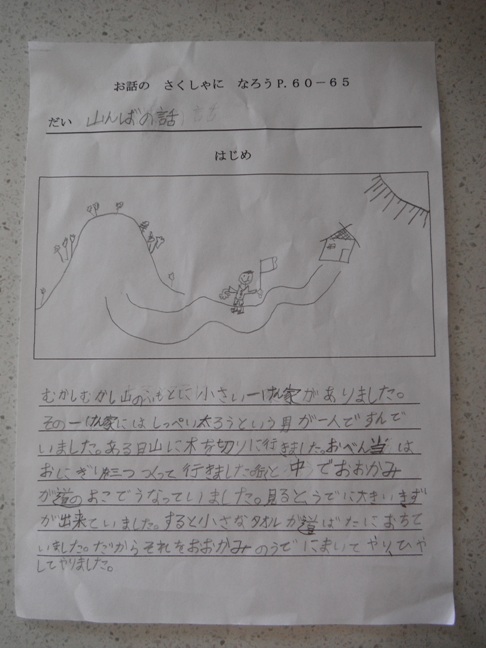 お話の さくしゃに なろうP.60－65
だい 山んばの話
はじめ
むかしむかし山のふもとに小さい一けん家がありました。
その一けん家にはしっぺい太ろうという男が一人ですんで
いました。ある日山に木を切りに行きました。おべん当は
おにぎり三つつくって行きました。中でおおかみ
が道のよこでうなっていました。見るとうでに大きいきず
が出来ていました。すると小さなタオルが道ばたにおちて
いました。だからそれをおおかみのうでにまいてやり、ひや
してやりました。